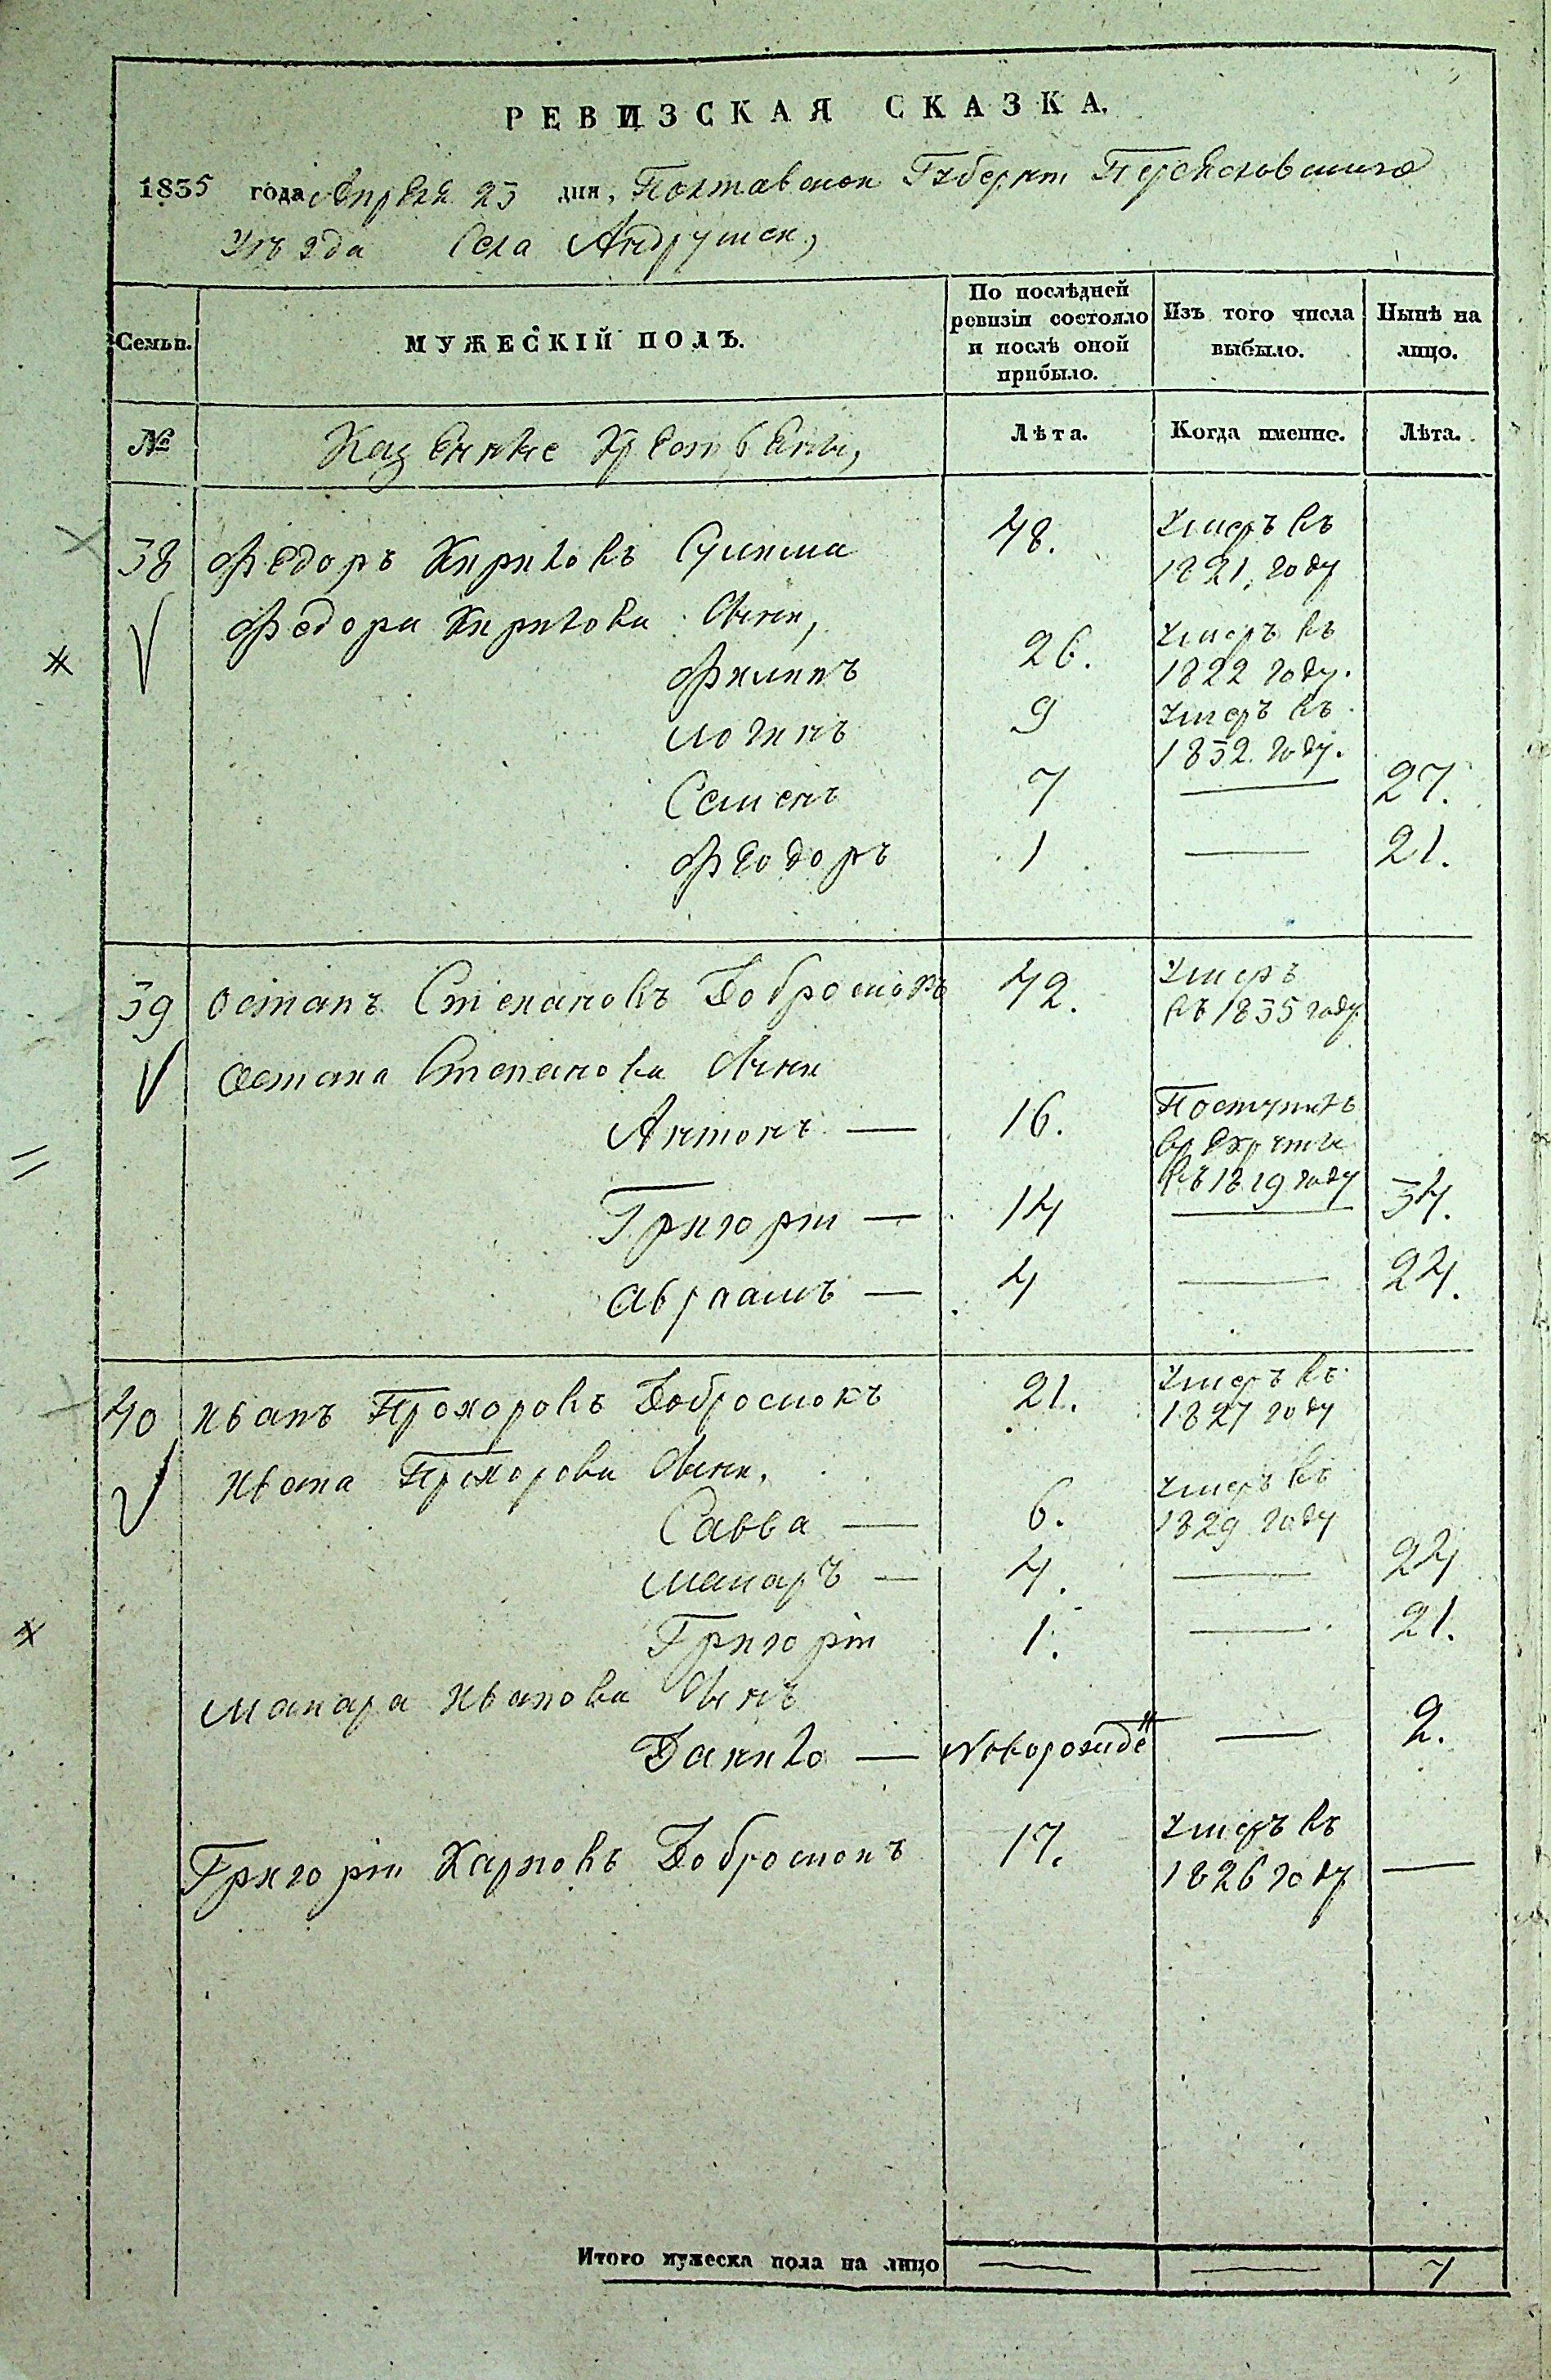 РЕВИЗСКАЯ СКАЗКА.
1835 года Апреля 23 дня, Полтавской Губерніи Переяловскаго
Уѣзда Села Андрушек,
Семьи. МУЖЕСКІЙ ПОЛЪ. По послѣдней ревизіи состояло и послѣ оной прибыло. Изъ того числа выбыло. Нынѣ на лицо.
№ Казенные Крестьяны, Лѣта. Когда именно. Лѣта.
38 Федоръ Кириловъ 48. Умеръ въ
1821, году
Федора Кирилова Сыны,
Филипъ 26. Умеръ въ
1822 году.
Логинъ 9 Умеръ въ
1832 году.
Семенъ 7 — 27.
Феодоръ 1 — 21.
39 Остапъ Степановъ Доброскокъ 42. Умеръ
въ 1835 году
Остапа Степанова Сыны
Антонъ — 16. Поступилъ
в рекруты
въ 1819 году
Григорій — 14 — 34.
Авраамъ — 4 — 24.
40 Иванъ Прохоровъ Доброскокъ 21. Умеръ въ
1827 году
Ивана Прохорова Сыны,
Савва — 6. Умеръ въ
1829 году
Макаръ — 4. — 24
Григорій 1. — 21.
Макара Иванова Сынъ
Данило — Новорожде — 2.
Григорій Карповъ Доброскокъ 17. Умеръ въ
1826 году —
Итого мужеска пола на лицо — — 7